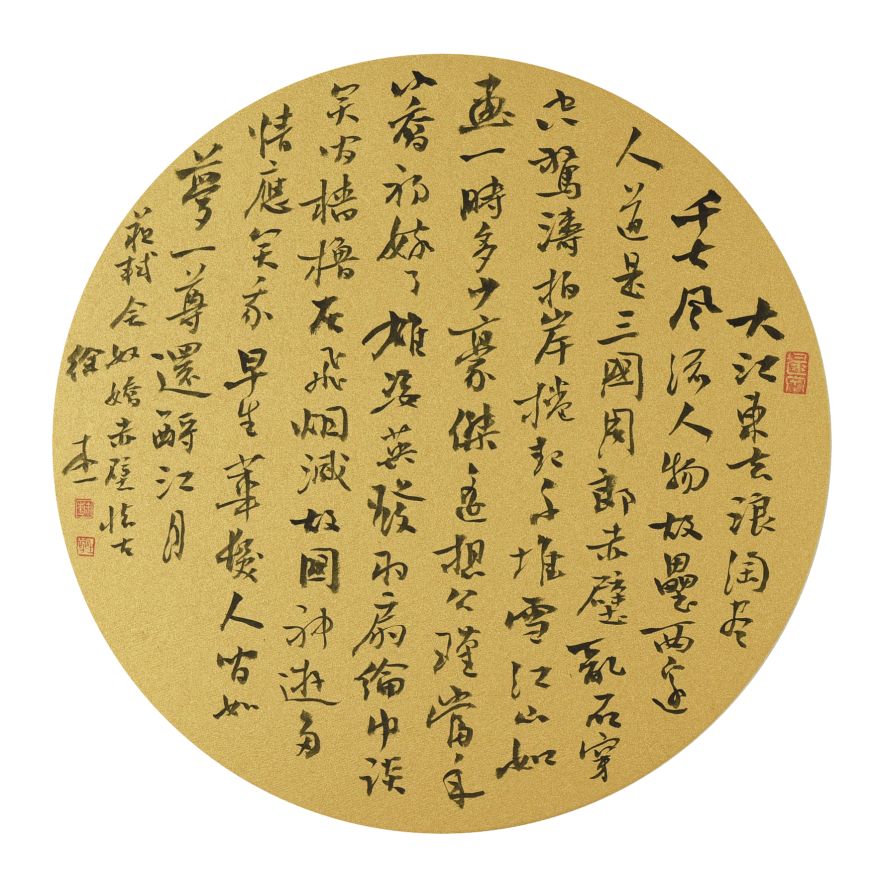 大江東去浪淘尽
千古风流人物故壘西邊
人道是三國周郎赤壁亂石穿
空驚濤拍岸捲起千堆雪江山如
畫一時多少豪傑遙想公瑾當年
小喬初嫁了雄姿英發羽扇綸巾談
笑間檣櫓灰飛烟滅故國神遊多
情應笑我早生華髮人間如
夢一尊還酹江月
蘇軾念奴嬌赤壁懷古
徐本一